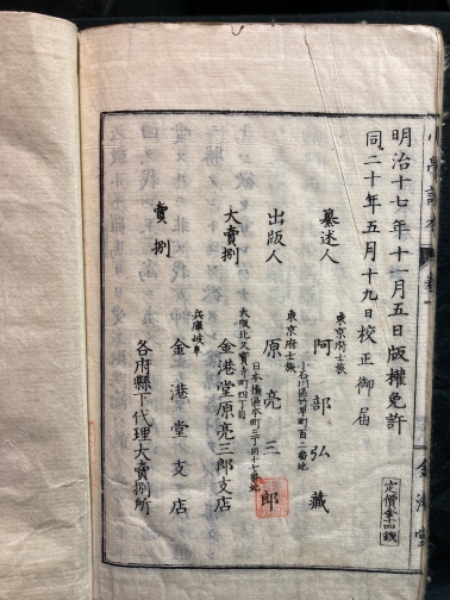 明治十七年十一月五日版權免許
同二十年五月十九日校正御届
定價金四錢
纂述人
東京府士族
阿部弘藏
小石川區竹早町百二番地
出版人
東京府士族
原亮三郎
日本橋區本町三丁目十七番地
大賣捌
大阪北久寶寺町四丁目
金港堂原亮三郎支店
賣捌
兵庫岐阜
金港堂支店
各府縣下代理大賣捌所